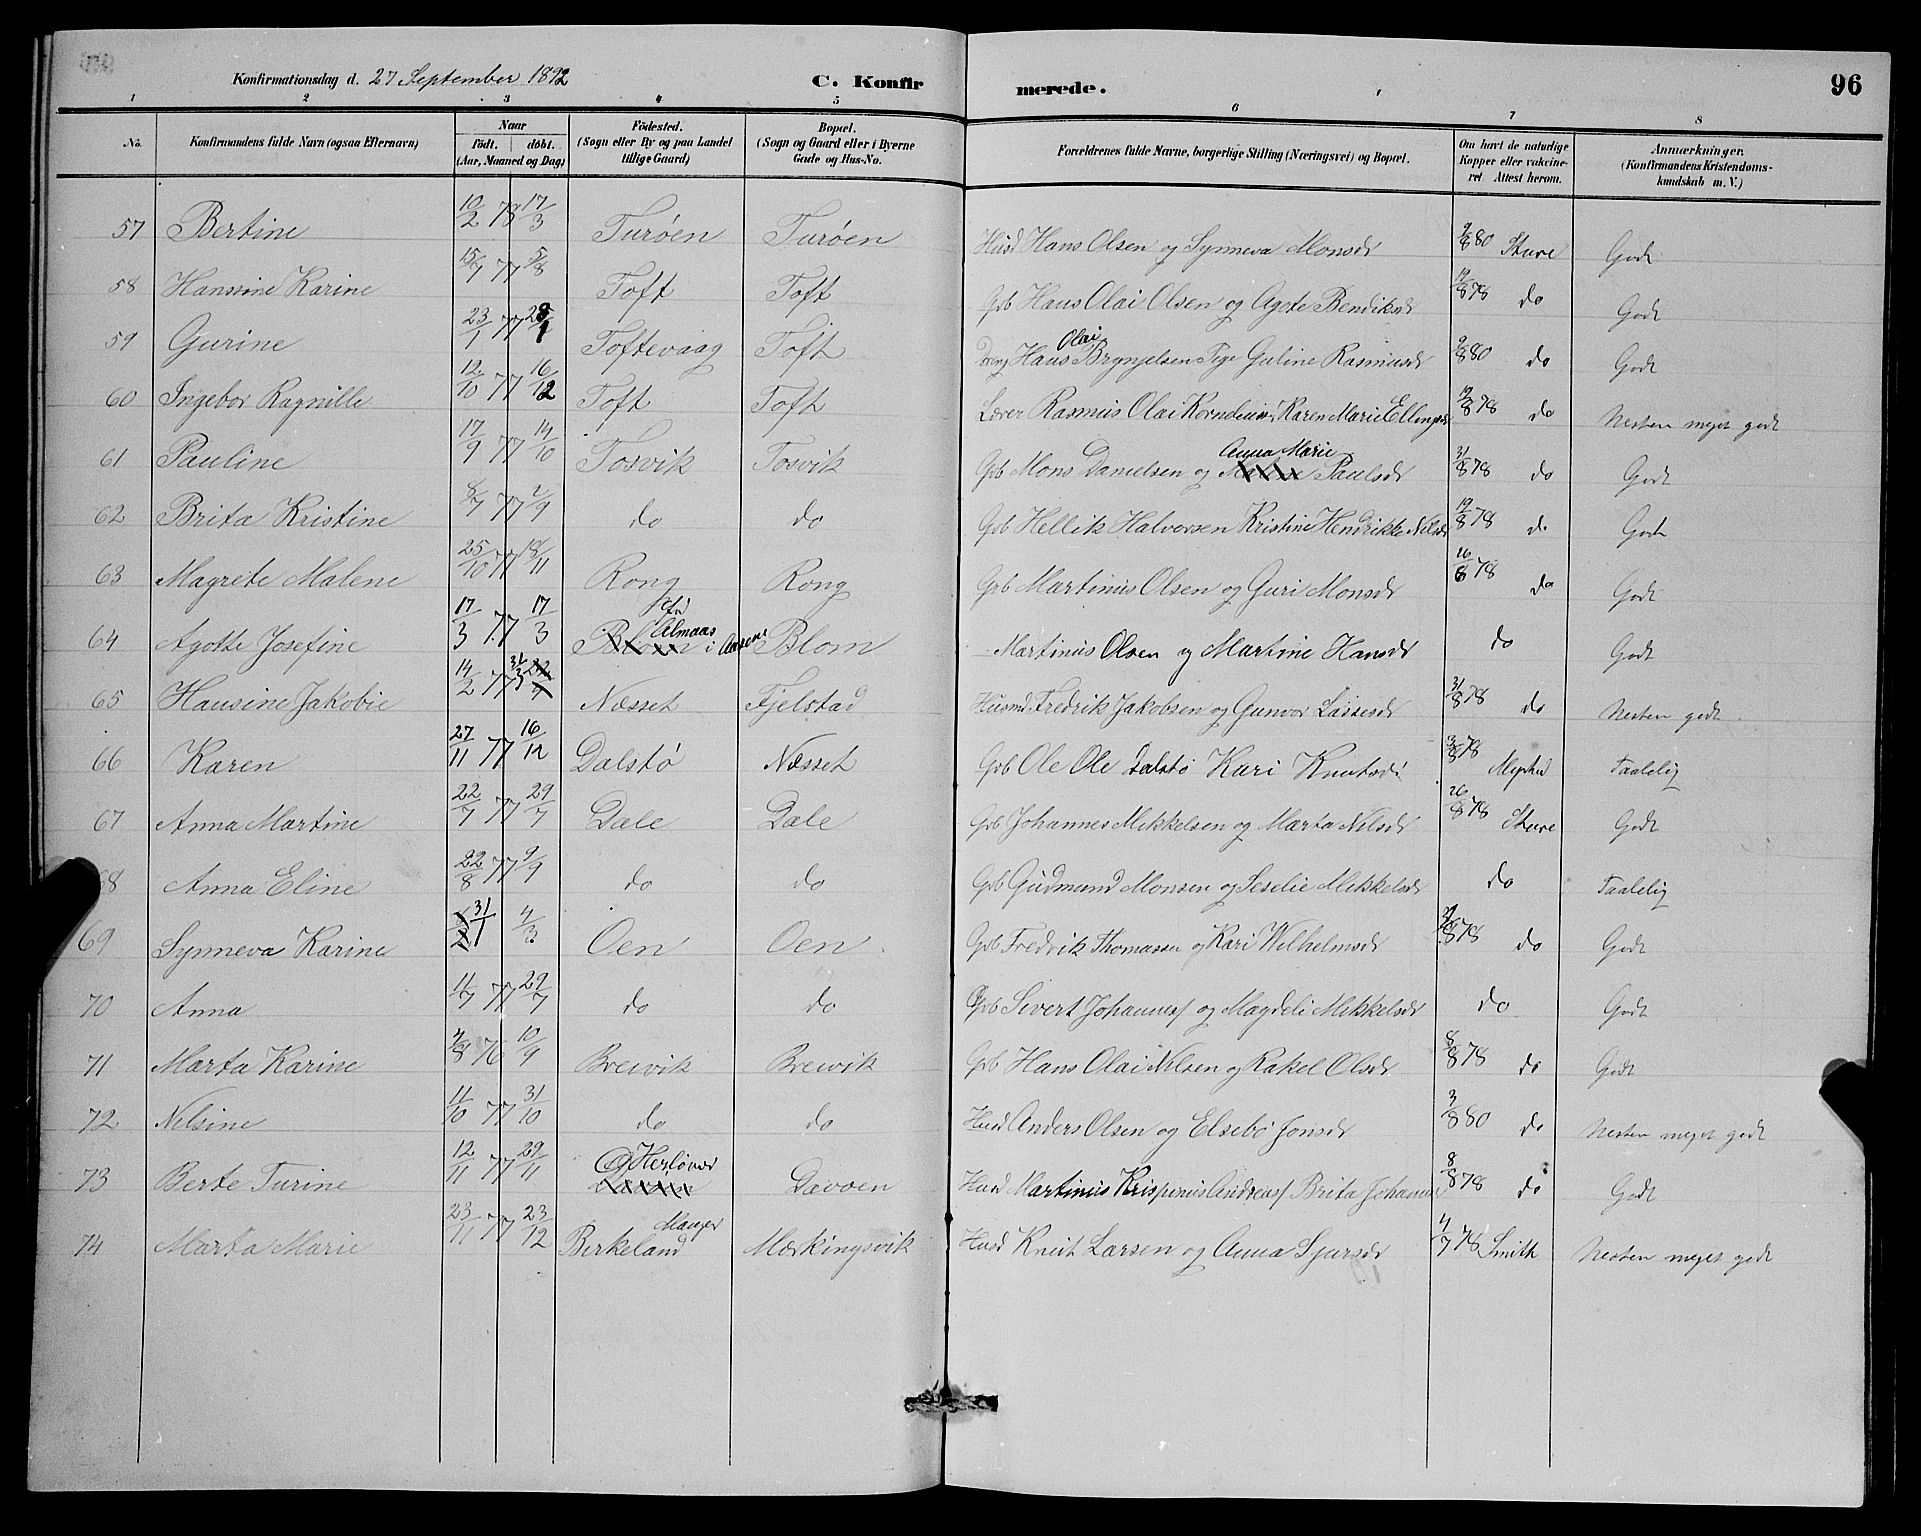 Konfirmationsdag d. 27 September 1892 C. Konfirmerede. 96
1 2 3 4 5 6 7 8
No. Konfirmandens fulde Navn (ogsaa Efternavn) Naar födt. döbt. (Aar, Maaned og Dag) Födested. (Sogn eller By og paa Landet tillige Gaard) Bopæl. (Sogn og Gaard eller i Byerne Gade og Hus-No. Forældrenes fulde Navne, borgerlige Stilling (Næringsvei) og Bopæl. Om havt de naturlige Kopper eller vakcineret Attest herom. Anmærkninger. (Konfirmandens Kristendomskundskab m. V.)
57 Bertine 10/2 78 17/3 Turøen Turøen Husd Hans Olsen og Synneva Monsdr 9/8 80 Sture Godt
58 Hansine Karine 15/7 77 5/8 Toft Toft Grb Hans Olai Olsen og Agote Bendiksdr 19/8 78 do Godt
59 Gurine 23/1 77 28/1 Toftevaag Toft Dreng Hans Olai Brynjelsen Pige Guline Rasmusdr 9/8 80 do Godt
60 Ingebor Ragnille 12/10 77 16/12 Toft Toft Lærer Rasmus Olai Korneliusen Karen Marie Ellingsdr 19/8 78 do Nesten meget godt
61 Pauline 17/9 77 14/10 Tosvik Tosvik Grb Mons Danielsen og Anna Marie Paulsdr 31/8 78 do Godt
62 Brita Kristine 8/7 77 2/9 do do Grb Hellik Halversen Kristine Hendrikke Nilsdr 19/8 78 do Godt
63 Magrete Malene 25/10 77 18/11 Rong Rong Grb Martinus Olsen og Guri Monsdr 16/8 78 do Godt
64 Agotte Josefine 17/3 77 17/3 Blom Almaas i Aasene Blom Martinus Olsen og Martine Hansdr do Godt
65 Hansine Jakobie 14/2 77 31/3 Næsset Fjelstad Husmd Fredrik Jakobsen og Gunvor Lassesdr 31/8 78 do Nesten godt
66 Karen 27/11 77 16/12 Dalstø Næsset Grb Ole Ole Dalstø Kari Knutsdr 78 Taalelig
67 Anna Martine 22/7 77 29/7 Dale Dale Grb Johannes Mikkelsen og Marta Nilsdr 26/8 78 Sture Godt
68 Anna Eline 22/8 77 9/9 do do Grb Gudmund Monsen og Seselie Mikkelsdr do Taalelig
69 Synneva Karine 31/1 4/3 Oen Oen Grb Fredrik Thomassen og Kari Wilhelmsdr 29/8 78 do Godt
70 Anna 11/7 77 29/7 do do Grb Sivert Johannes/ og Magdeli Mikkelsdr do Godt
71 Marta Karine 4/8 76 10/9 Breivik Breivik Grb Hans Olai Nilsen og Rakel Olsdr 8/8 78 do Godt
72 Nilsine 11/10 77 31/10 do do Husd Anders Olsen og Elsebø Jonsdr 3/8 80 do Nesten meget godt
73 Berte Turine 12/11 77 29/11 Herløver Davøen Husd Martinus Krispinus Andreas/ Brita Johannes 8/8 78 do Godt
74 Marta Marie 23/11 77 23/12 Birkeland Manger Mærkingsvik Husd Knut Larsen og Anna Sjursdr 4/7 78 Smith Nesten meget godt